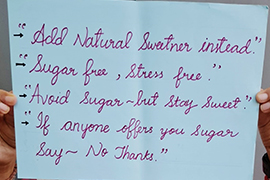 → "Add Natural Sweetner instead."
→ "Sugar free, Stress free."
→ "Avoid Sugar~but Stay Sweet."
→ "If anyone offers you Sugar
Say~ No Thanks."